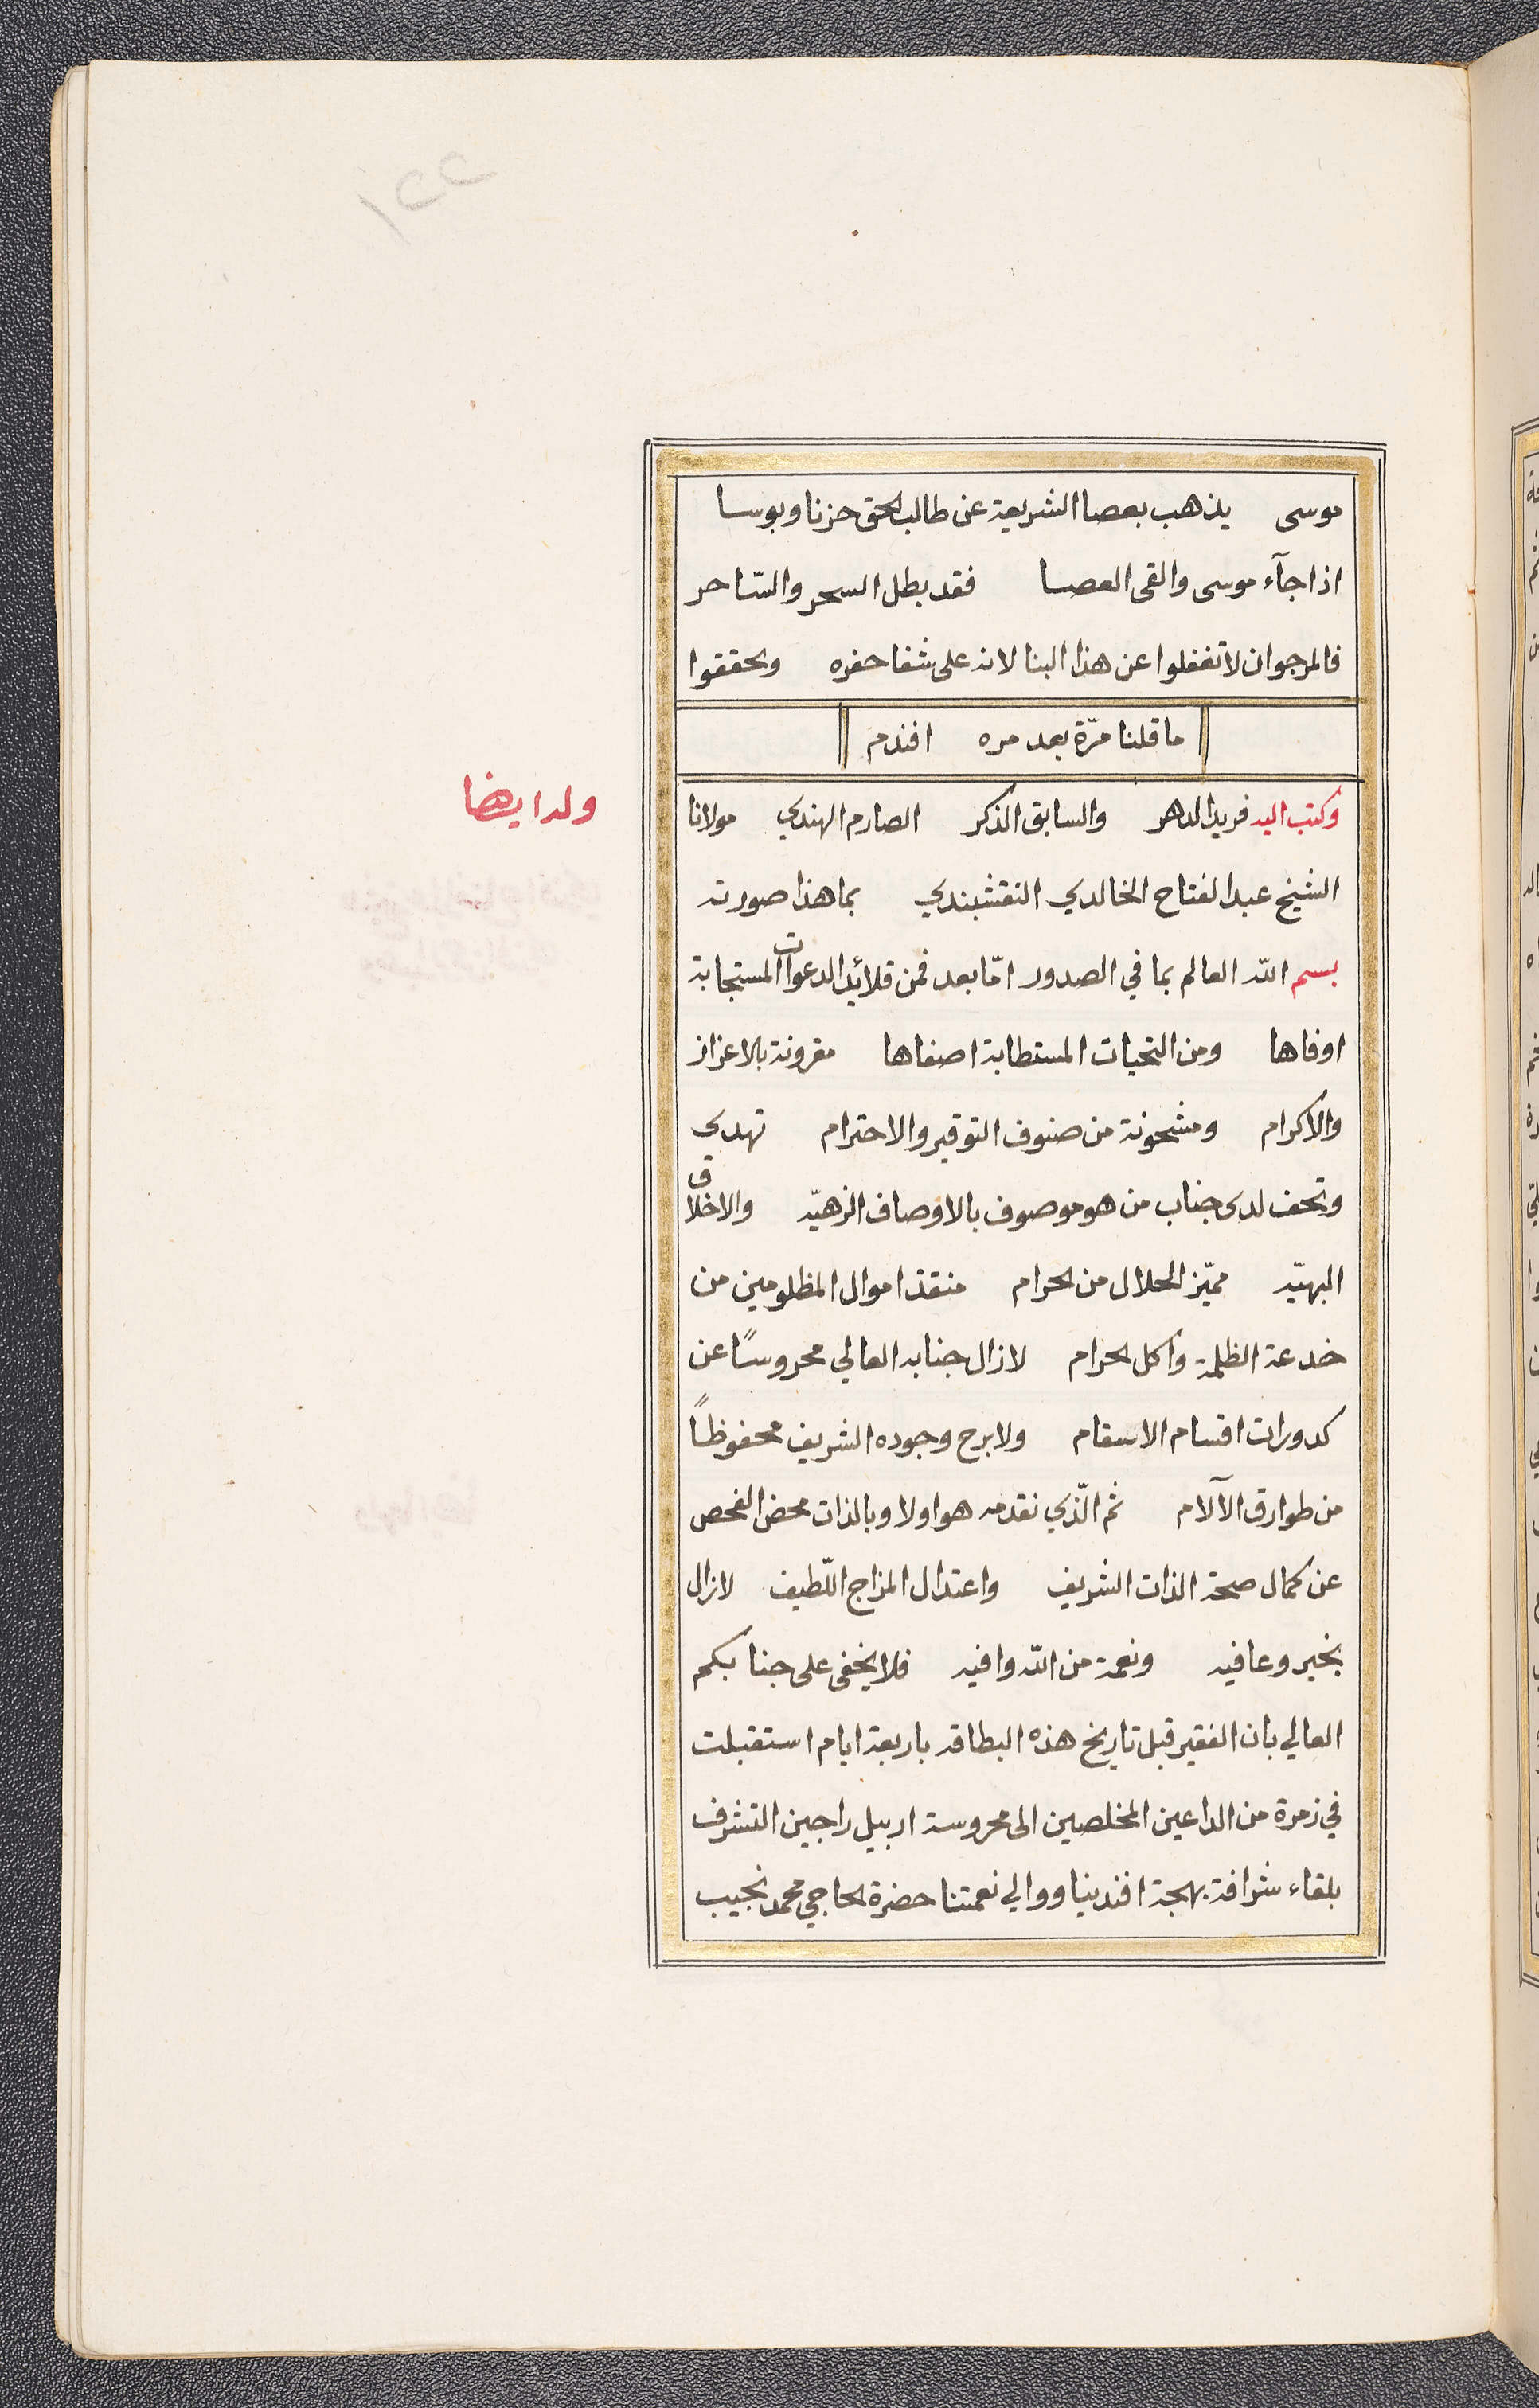 موسى يذهب بعصا الشريعة عن طالب الحق حزنا وبوسا
اذا جآء موسى والقى العصا فقد بطل السحر والسّاحر
فالمرجو ان لا تغفلوا عن هذا البنا لانه على شفا حفره وتحققوا
ما قلنا مرّة بعد مره افندم
وله ايضا
وكتب اليه فريد الدهر والسابق الذكر الصارم الهندي مولانا
الشيخ عبد الفتاح الخالدي النقشبندي بما هذا صورته
بسم الله العالم بما في الصدور امّا بعد فمن قلائد الدعوات المستجابة
اوفاها ومن التحيات المستطابة اصفاها مقرونة بالاعزاز
والاكرام ومشحونة من صنوف التوقير والاحترام تهدى
وتحف لدى جناب من هو موصوف بالاوصاف الزهيّه والاخلاق
البهيّه مميّز الحلال من الحرام منقذ اموال المظلومين من
خدعة الظلمة واكل الحرام لازال جنابه العالي محروسًا عن
كدورات اقسام الاسقام ولابرح وجوده الشريف محفوظًا
من طوارق الآلام ثم الّذي نقدمه هو اولا وبالذات محض الفحص
عن كمال صحة الذات الشريف واعتدال المزاج اللّطيف لازال
بخير وعافيه ونعمة من الله وافيه فلا يخفى على جنابكم
العالي بان الفقير قبل تاريخ هذه البطاقه باربعة ايام استقبلت
في زمرة من الداعين المخلصين الى محروسة اربيل راجين التشرف
بلقاء شرافة بهجة افندينا ووالي نعمتنا حضرة الحاجي محمد نجيب